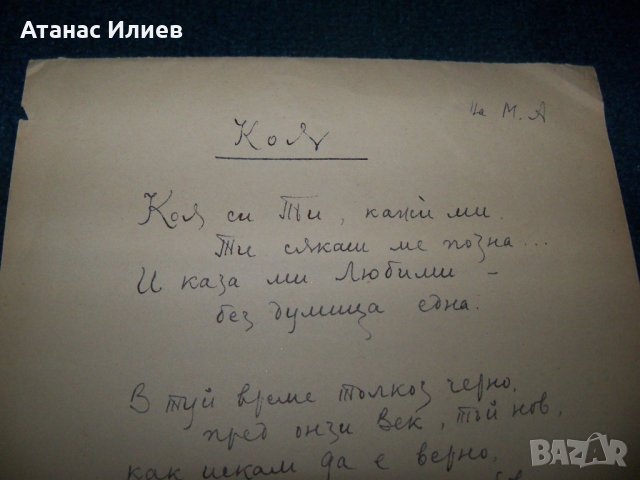 Атанас Илиев
На М. А
Коя
Коя си Ти, кажи ми
Ти сякаш ме позна...
И каза ми Любими –
без думица една.
В туй време толкоз черно,
пред онзи век, тъй нов,
как искам да е верно,
BAZAR